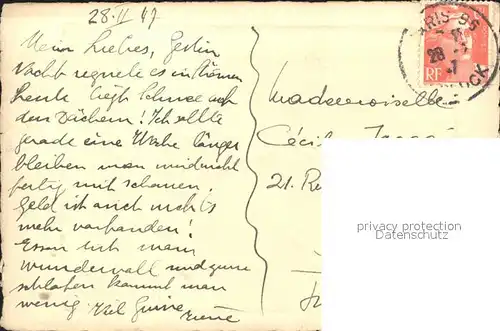 28.II 47
Mein Liebes, Gestern
Nacht regnete es in Strömen
heute liegt Schnee auf
den Dächern! Ich sollte
gerade eine Woche länger
bleiben man wird nicht
fertig mit schauen.
Geld ist auch nichts
mehr vorhanden!
Essen tut man
wundervoll und zum
schlafen kommt man
wenig. Viel
PARIS
28
RF
Mademoiselle
21. R
privacy protection
Datenschutz